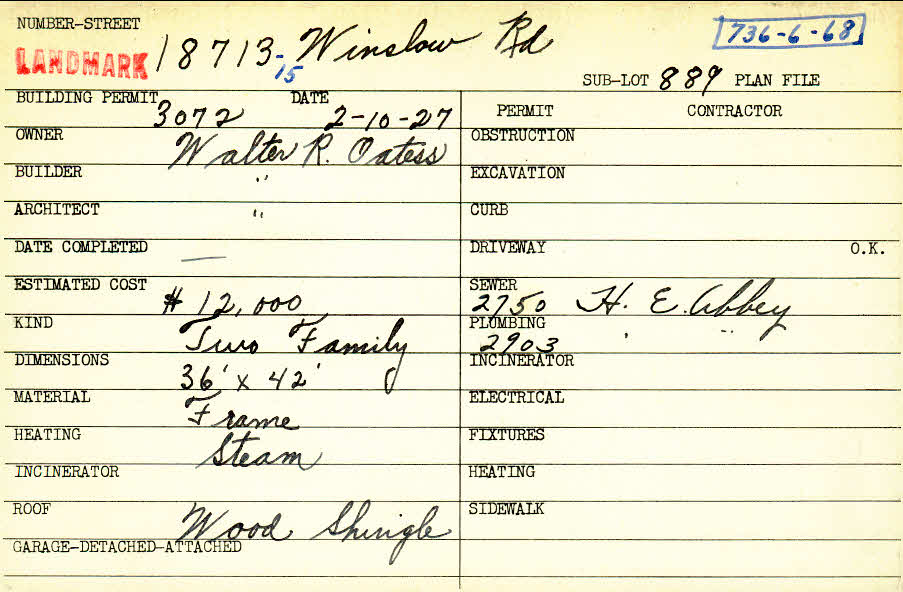 NUMBER-STREET
LANDMARK 18713-15 Winslow Rd
736-6-68
SUB-LOT 889 PLAN FILE
BUILDING PERMIT 3072 DATE 2-10-27
PERMIT CONTRACTOR
OWNER Walter R. Oatess
OBSTRUCTION
BUILDER "
EXCAVATION
ARCHITECT "
CURB
DATE COMPLETED —
DRIVEWAY O.K.
ESTIMATED COST $ 12,000
SEWER 2750 H. E. Abbey
KIND Two Family
PLUMBING 2903 ' "
DIMENSIONS 36' x 42'
INCINERATOR
MATERIAL Frame
ELECTRICAL
HEATING Steam
FIXTURES
INCINERATOR
HEATING
ROOF Wood Shingle
SIDEWALK
GARAGE-DETACHED-ATTACHED